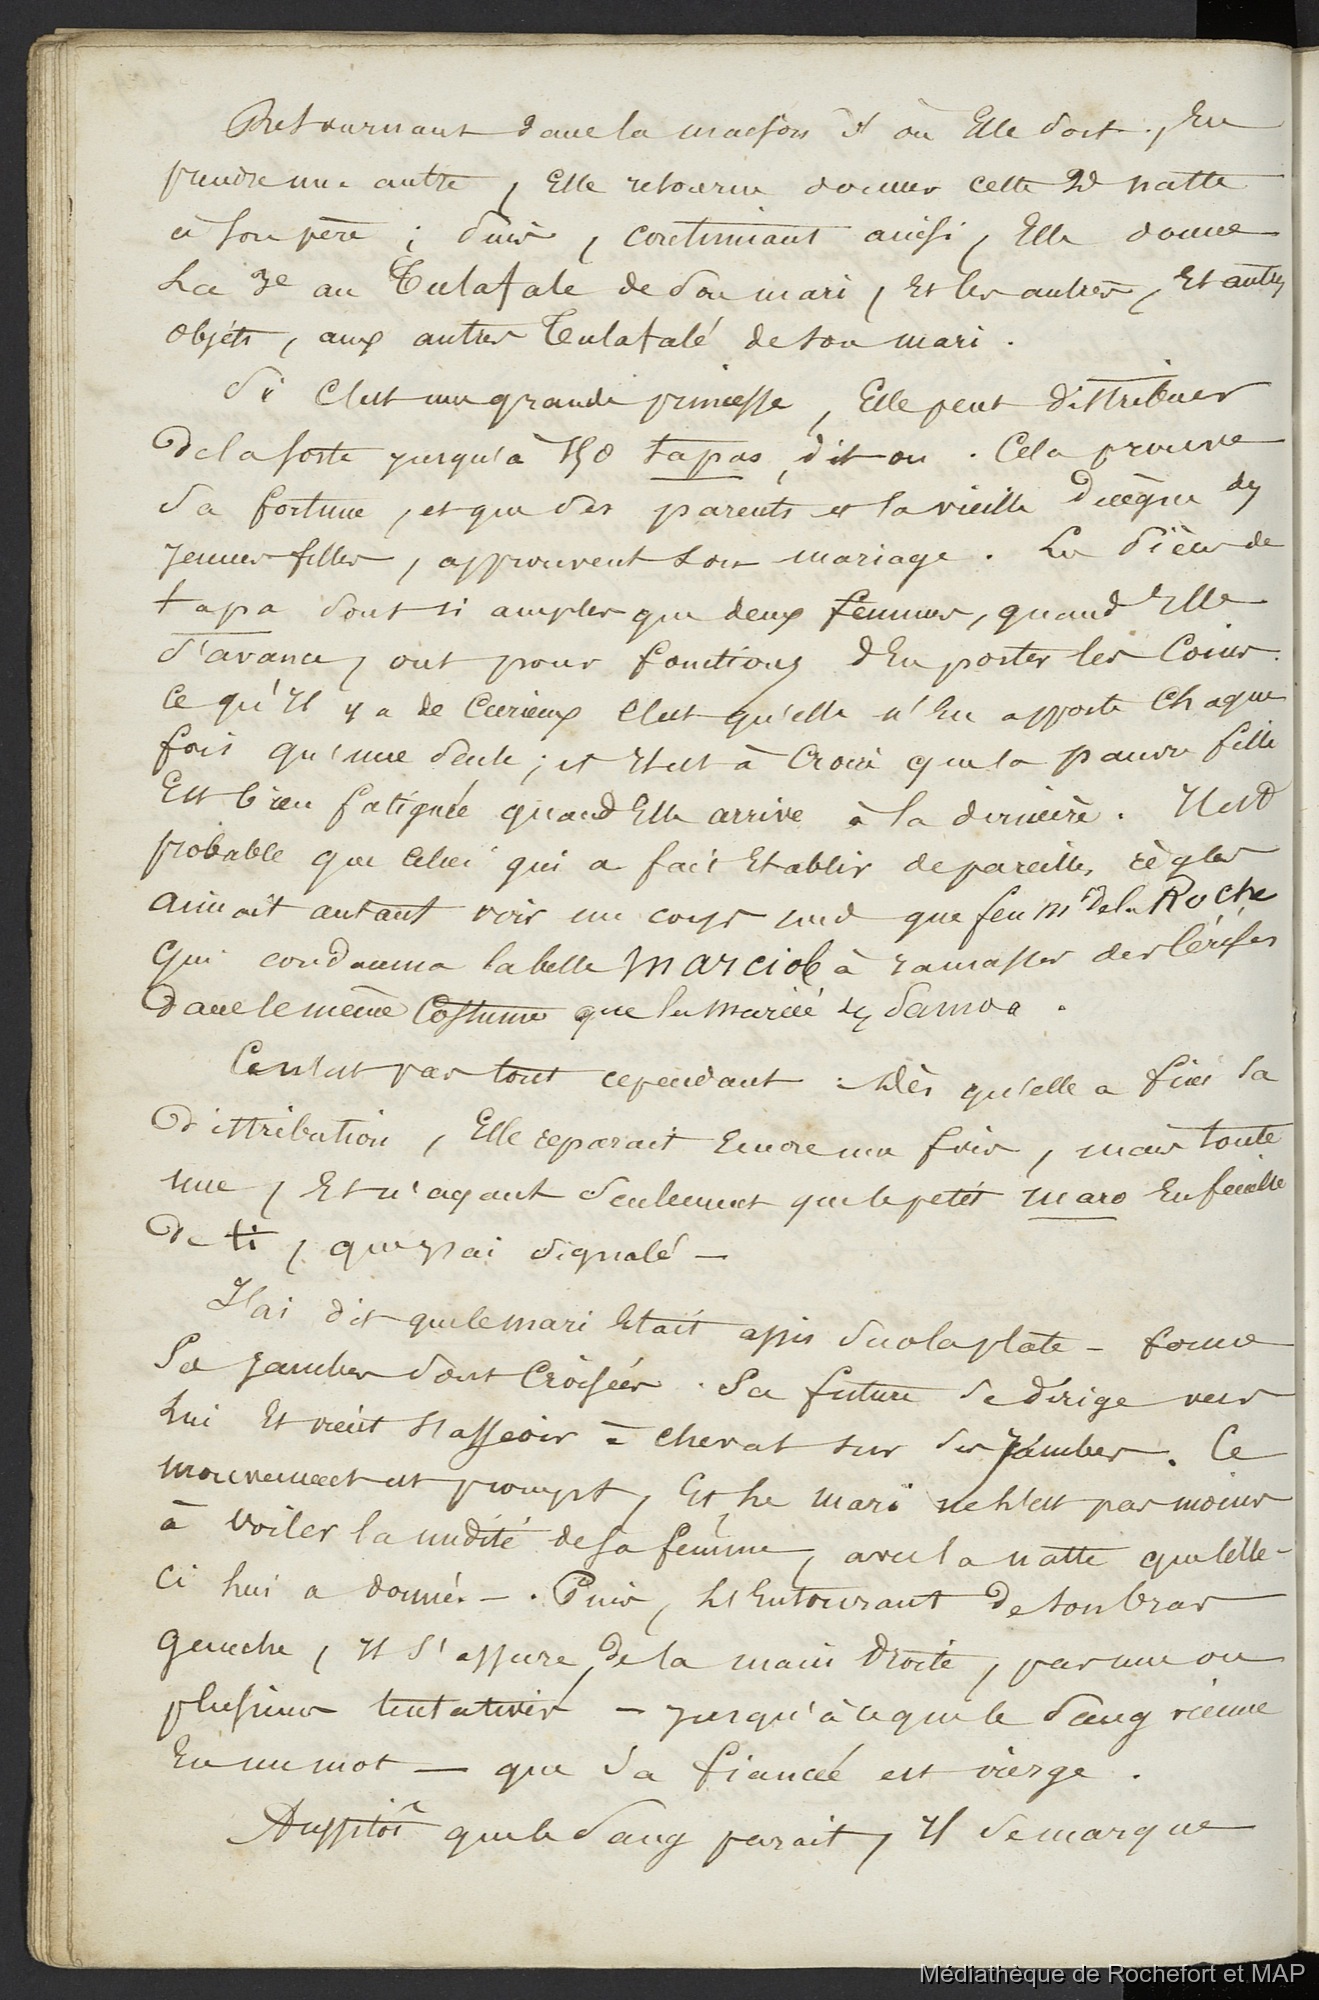 Retournant dans la maison d'où Elle sort, En
prendre une autre, Elle retourne donner cette 2d natte
à son père ; puis, continuant ainsi, Elle donne
La 3e au Tulafale de son mari, Et les autres, Et autres
objets, aux autres Tulafalé de son mari.
Si C'est une grande princesse, Elle peut distribuer
De la sorte jusqu'à 150 tapas, dit-on. Cela prouve
Sa fortune, et que ses parents et la vieille Duègne des
jeunes filles, approuvent son mariage. Les pièces de
tapa sont si amples que deux femmes, quand Elle
s'avance, ont pour fonctions d'En porter les Coins.
Ce qu'Il y a de Curieux C'est qu'elle n'En apporte Chaque
fois qu'une seule ; et Il est à Croire que la pauvre fille
Est bien fatiguée quand Elle arrive à la dernière. Il est
probable que celui qui a fait Etablir de pareilles règles
aimait autant voir un corps nud que feu Mr de la Roche
qui condamna la belle Marciole à ramasser des Cerises
Dans le même Costume que la Mariée des Samoa.
Ce n'est pas tout cependant : Dès qu'elle a fini sa
Distribution, Elle reparait Encore une fois, mais toute
nue, Et n'ayant seulement que le petit maro En feuille
De ti, que j'ai signalé —
J'ai dit que le mari Etait assis sur la plate - forme
Ses jambes sont Croisées. Sa future se dirige vers
Lui Et vient s'asseoir à cheval sur ses jambes. Ce
mouvement est prompt, Et le mari ne l'est pas moins
à voiler la nudité de sa femme, avec la natte que celle-
Ci lui a donnée —. Puis, L'Entourant de son bras
gauche, Il s'assure, De la main Droite, par une ou
plusieurs tentatives — jusqu'à ce que le sang vienne
En un mot — que sa fiancée est vierge.
Aussitôt que le sang parait, Il se marque
Médiathèque de Rochefort et MAP